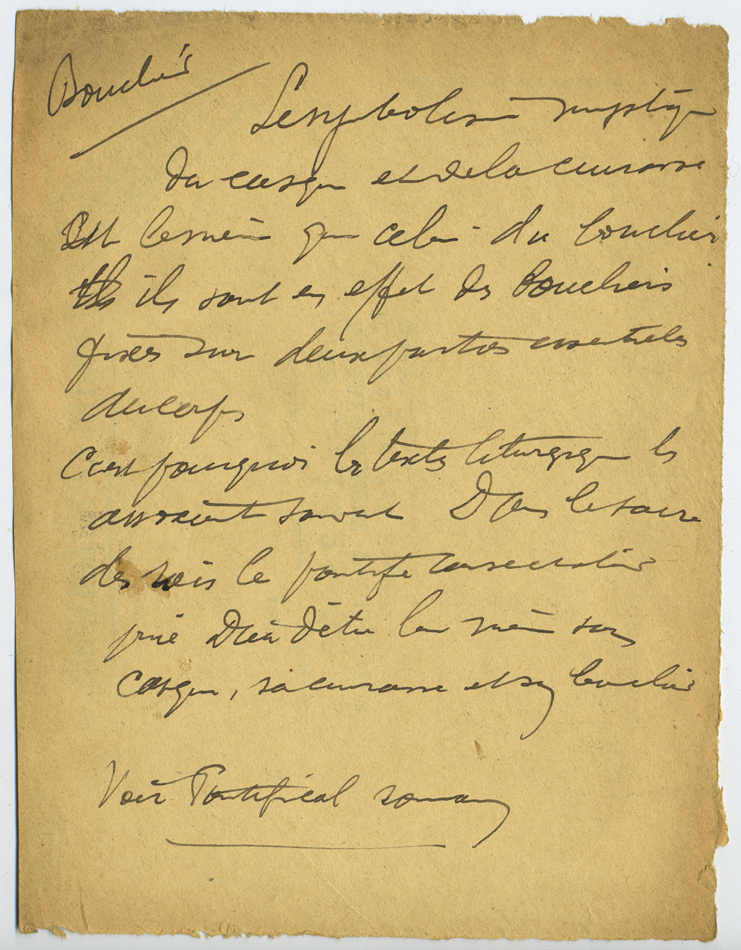 Bouclier
Le symbolisme mystique
du casque et de la cuirasse
est le même que celui du bouclier
ils sont en effet des boucliers
fixés sur deux parties essentielles
du corps
c'est pourquoi les textes liturgiques les
associent souvent Dans le sacre
des rois le pontife consécrateur
prie Dieu d'être lui même son
casque, sa cuirasse et son bouclier
Voir Pontifical romain